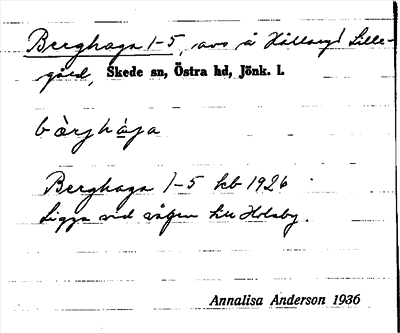 Berghaga 1-5, avs å Hållaryd Lille-
gård, Skede sn, Östra hd, Jönk. l.
bàrghága
Berghaga 1-5 kb 1926
Ligga vid vägen till Holsby.
Annalisa Anderson 1936